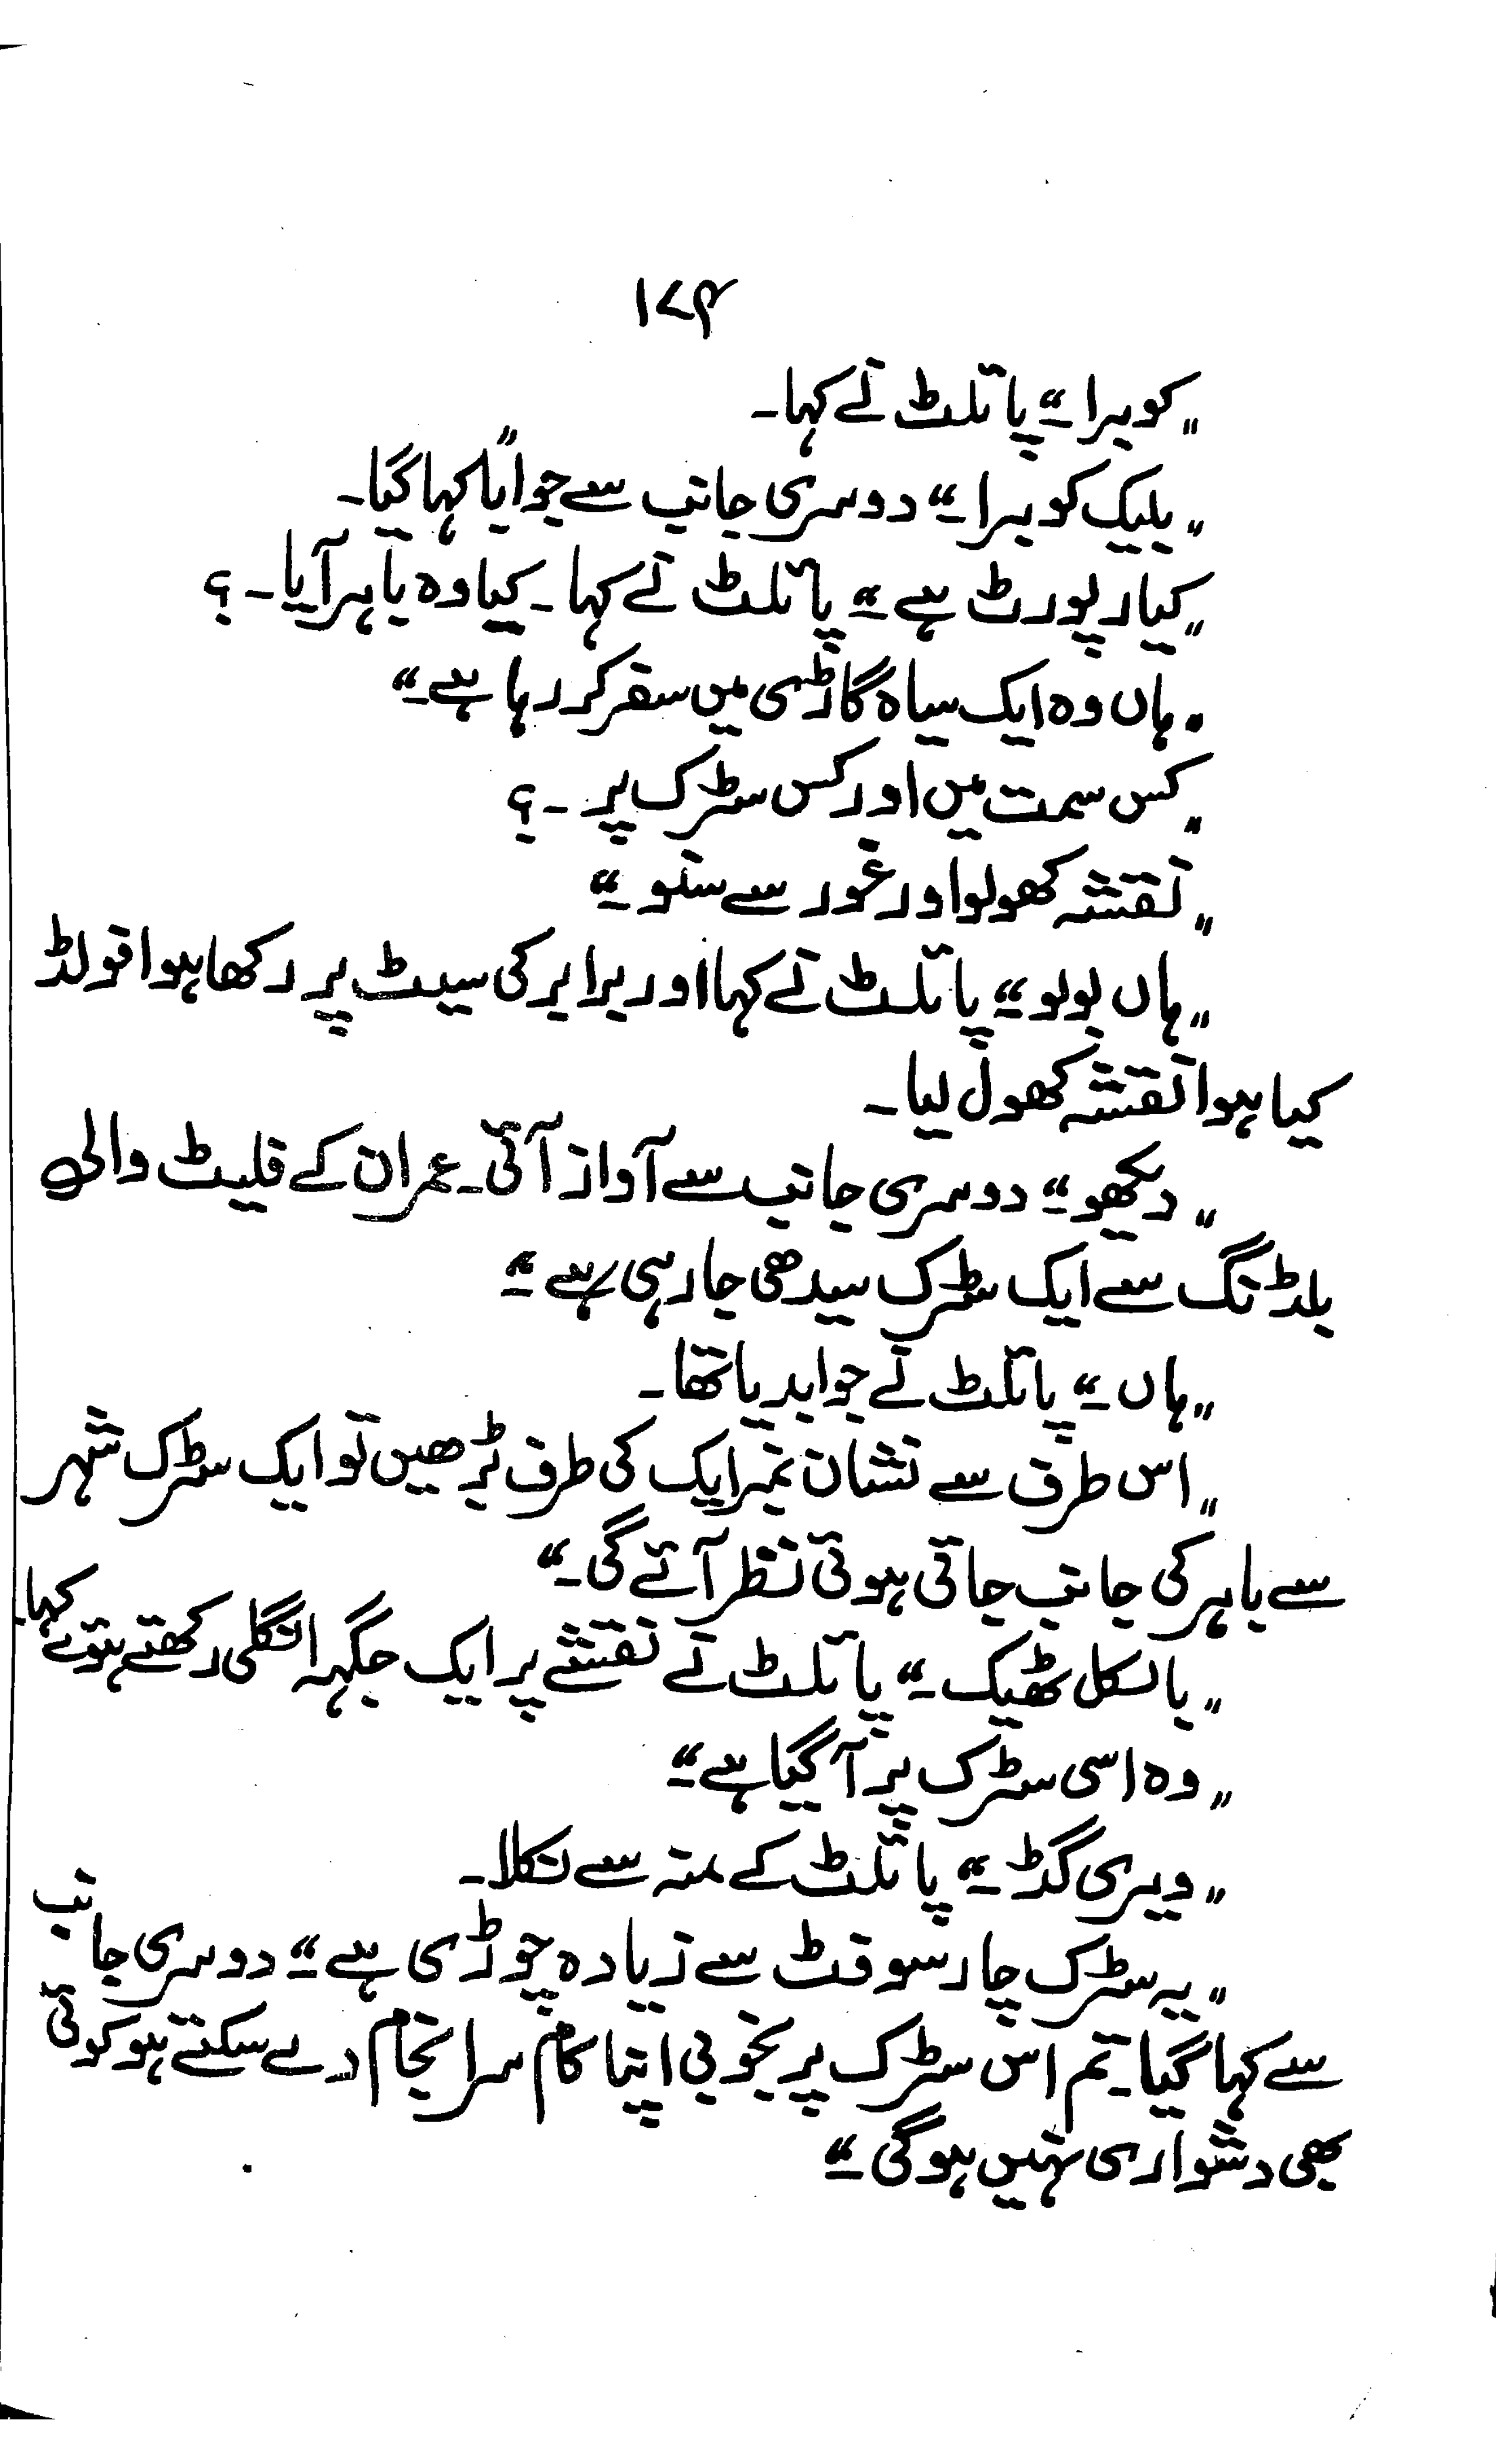 ۱۷۹
"کوبرا۔" پائلٹ نے کہا۔
"بلیک کوبرا۔" دوسری جانب سے جواباً کہا گیا۔
"کیا رپورٹ ہے۔" پائلٹ نے کہا۔ کیا وہ باہر آیا۔؟
"ہاں وہ ایک سیاہ گاڑی میں سفر کر رہا ہے۔"
"کس سمت میں اور کس سڑک پر۔؟
"نقشہ کھولو اور غور سے سنو۔"
"ہاں بولو۔" پائلٹ نے کہا اور برابر کی سیٹ پر رکھا ہوا فولڈ
کیا ہوا نقشہ کھول لیا۔
"دیکھو۔" دوسری جانب سے آواز آئی۔ عمران کے فلیٹ والی
بلڈنگ سے ایک سڑک سیدھی جا رہی ہے۔"
"ہاں۔" پائلٹ نے جواب دیا تھا۔
"اس طرف سے نشان نمبر ایک کی طرف بڑھیں تو ایک سڑک شہر
سے باہر کی جانب جاتی ہوئی نظر آئے گی۔"
"بالکل ٹھیک۔" پائلٹ نے نقشے پر ایک جگہ انگلی رکھتے ہوئے کہا۔
"وہ اسی سڑک پر آ گیا ہے۔"
"ویری گڈ۔" پائلٹ کے منہ سے نکلا۔
"یہ سڑک چار سو فٹ سے زیادہ چوڑی ہے۔" دوسری جانب
سے کہا گیا۔ تم اس سڑک پر بخوبی اپنا کام سرانجام دے سکتے ہو کوئی
بھی دشواری نہیں ہو گی۔"